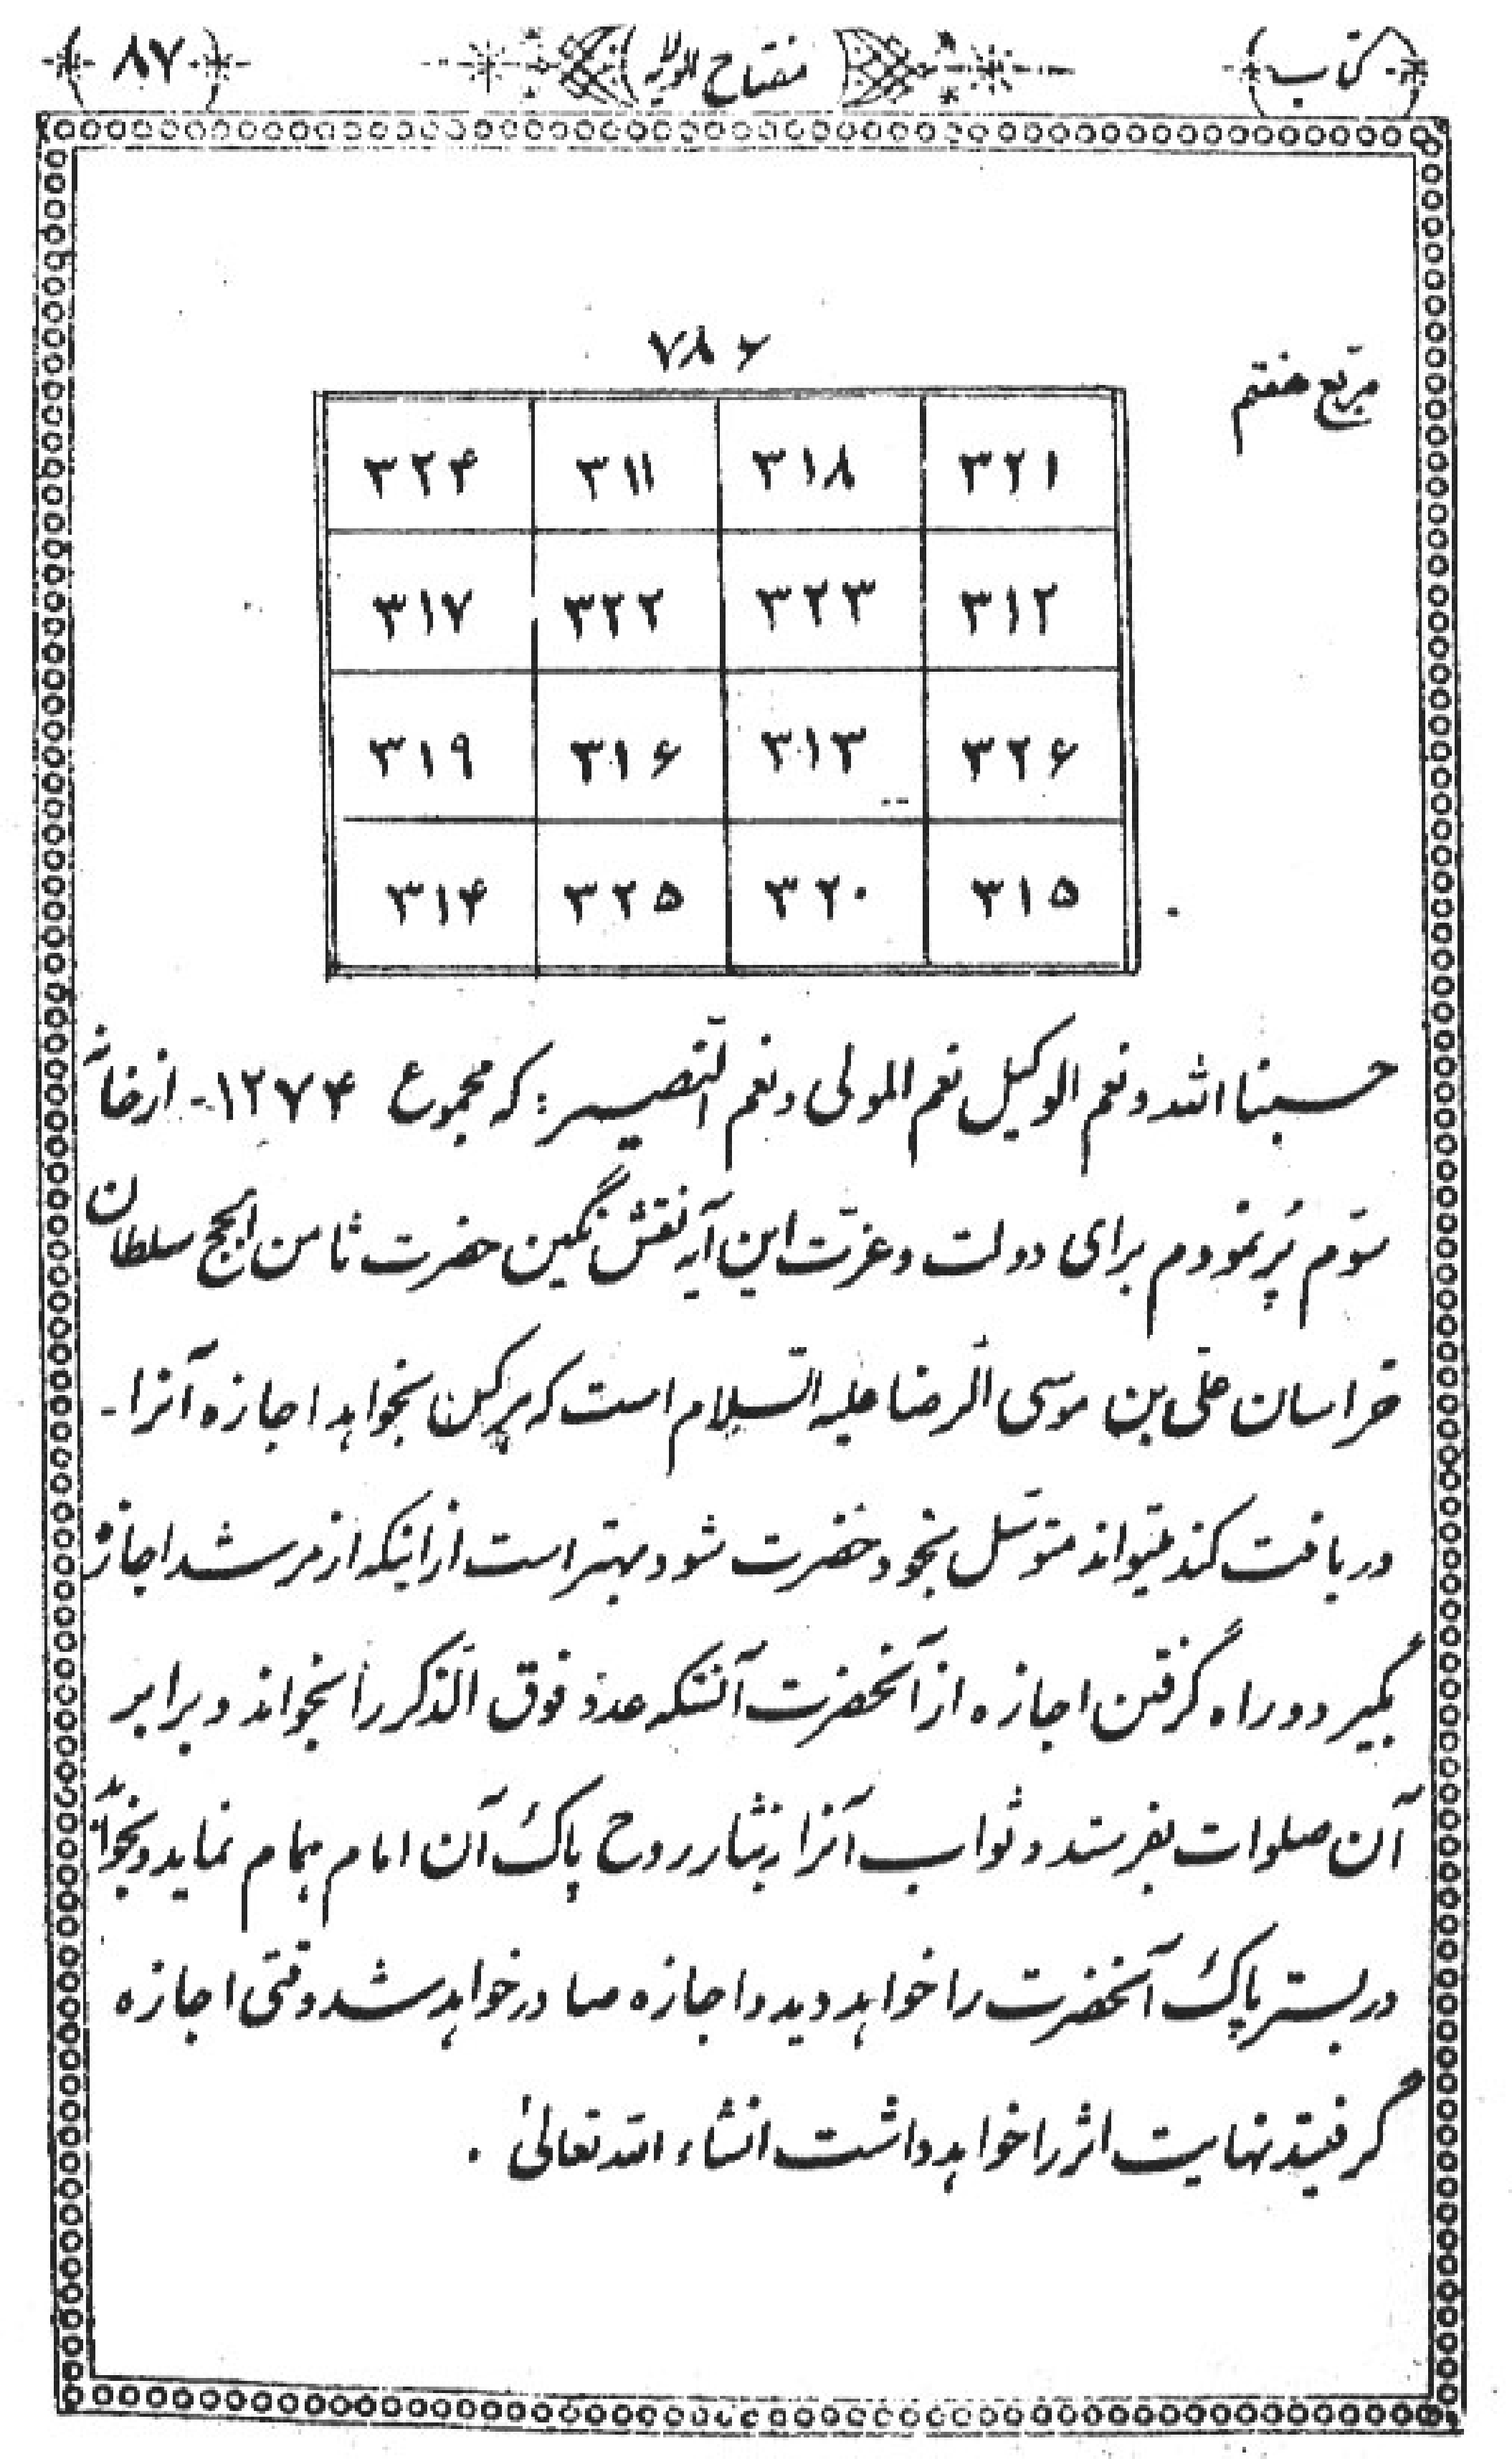 کتاب مفتاح الولایه ۸۷
مربّع هفتم
۷۸۶
۳۲۴ ۳۱۱ ۳۱۸ ۳۲۱
۳۱۷ ۳۲۲ ۳۲۳ ۳۱۲
۳۱۹ ۳۱۶ ۳۱۳ ۳۲۶
۳۱۴ ۳۲۵ ۳۲۰ ۳۱۵
حسبنا الله و نعم الوکیل نعم المولی و نعم النّصیر : که مجموع ۱۲۷۴ - از خانه
سوّم پُر نمودم برای دولت و عزّت این آیه نقش نگین حضرت ثامن الحجج سلطان
خراسان علی بن موسی الرّضا علیه السّلام است که هر کس بخواهد اجازه آنرا -
دریافت کند میتواند متوسّل بخود حضرت شود بهتر است از اینکه از مرشد اجازه
بگیرد و راه گرفتن اجازه از آنحضرت آنستکه عدد فوق الذّکر را بخواند و برابر
آن صلوات بفرستد و ثواب آنرا نثار روح پاک آن امام همام نماید و بخوابد
در بستر پاک آنحضرت را خواهد دید و اجازه صادر خواهد شد وقتی اجازه
گرفتید نهایت اثر را خواهد داشت انشاء الله تعالیٰ .